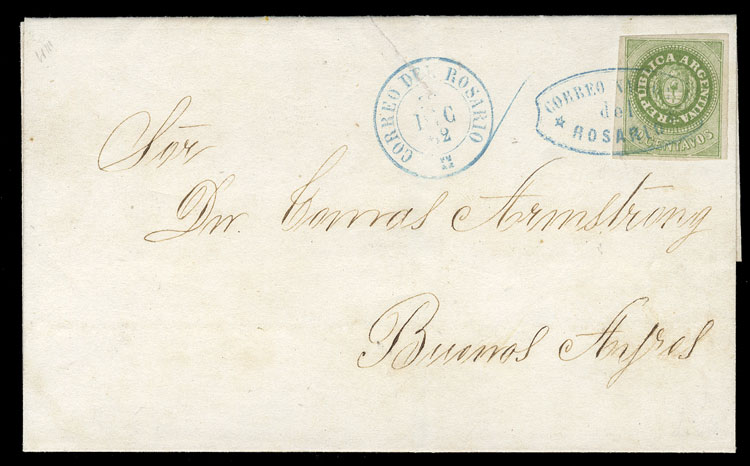 CORREO DEL ROSARIO
CORREO
del
ROSARIO
REPUBLICA ARGENTINA
Sör
Dn. Tomas Armstrong
Buenos Ayres